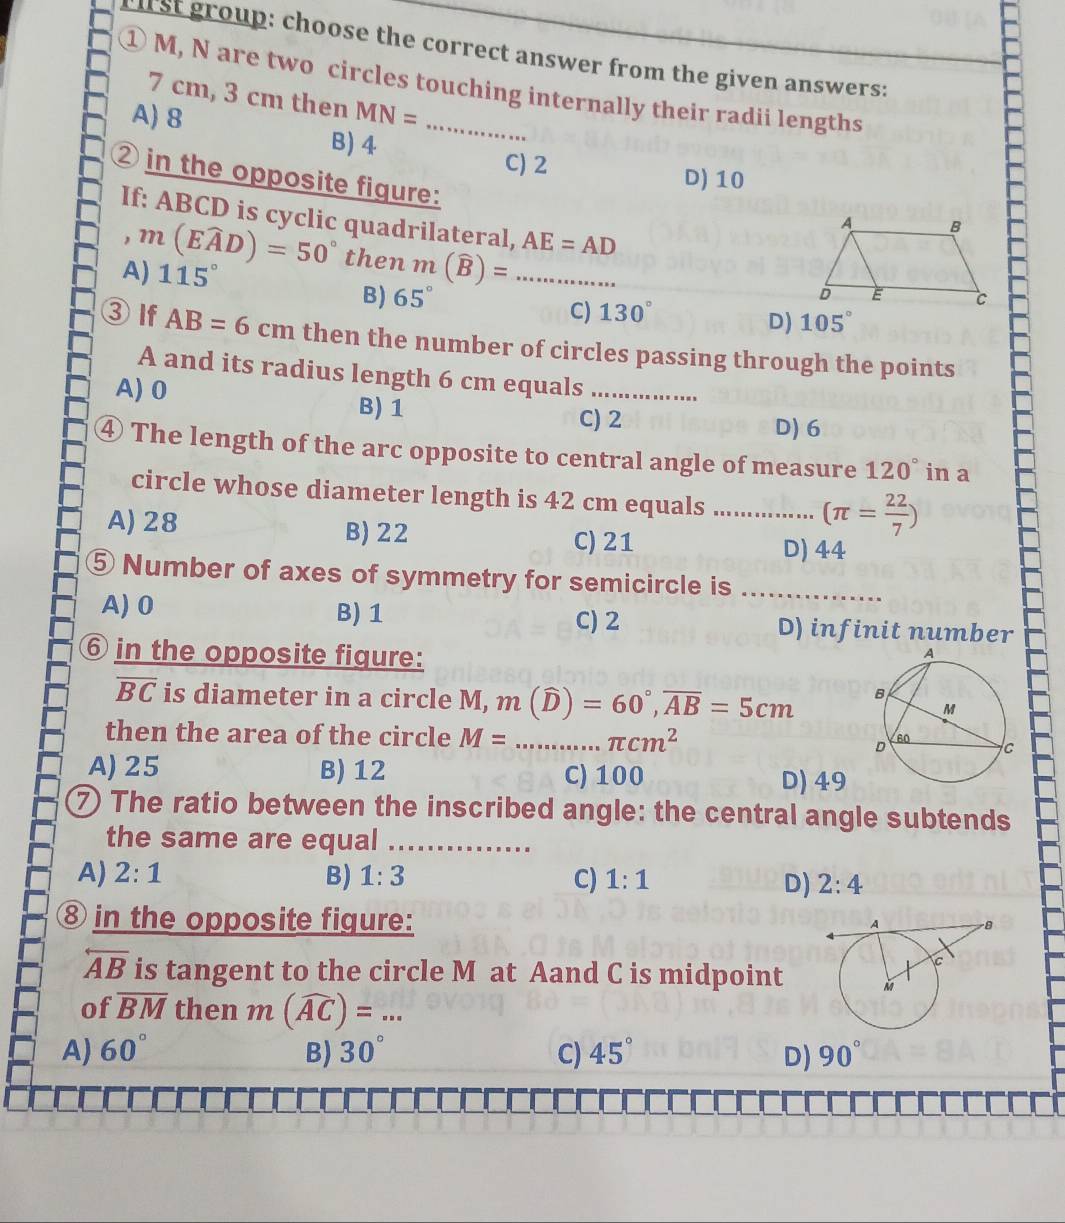 First group: choose the correct answer from the given answers:
① M, N are two circles touching internally their radii lengths
7 cm, 3 cm then MN = ...............
A) 8 B) 4 C) 2 D) 10
② in the opposite figure:
If: ABCD is cyclic quadrilateral, AE = AD
, m (EÂD) = 50° then m (B̂) = ...............
A) 115° B) 65° C) 130° D) 105°
A B
D E C
③ If AB = 6 cm then the number of circles passing through the points
A and its radius length 6 cm equals ...............
A) 0 B) 1 C) 2 D) 6
④ The length of the arc opposite to central angle of measure 120° in a
circle whose diameter length is 42 cm equals ............... (π = 22/7)
A) 28 B) 22 C) 21 D) 44
⑤ Number of axes of symmetry for semicircle is ...............
A) 0 B) 1 C) 2 D) infinit number
⑥ in the opposite figure:
B̅C̅ is diameter in a circle M, m (D̂) = 60°, A̅B̅ = 5cm
then the area of the circle M = ........... πcm²
A) 25 B) 12 C) 100 D) 49
A
B
M
D 60 C
⑦ The ratio between the inscribed angle: the central angle subtends
the same are equal ...............
A) 2: 1 B) 1: 3 C) 1: 1 D) 2: 4
⑧ in the opposite figure:
AB is tangent to the circle M at Aand C is midpoint
of B̅M̅ then m (AC) = ...
A) 60° B) 30° C) 45° D) 90°
A B
C
M